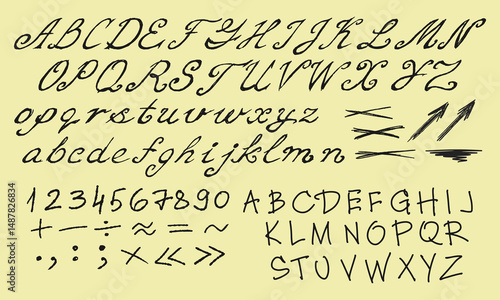 ABCDEFGHIJKLMN
OPQRSTUVWXYZ
opqrstuvwxyz
abcdefghijklmn
1234567890
+ − ÷ ≈ = ~
. , : ; × « »
ABCDEFGHIJ
KLMNOPQR
STUVWXYZ
Adobe Stock | #1487826834